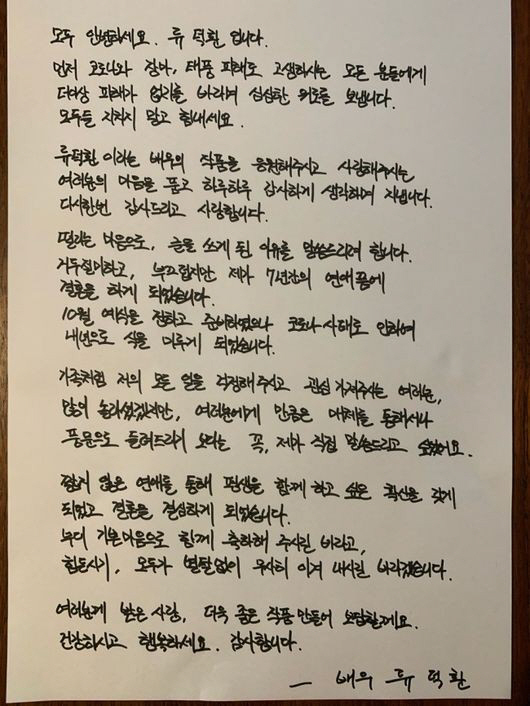 모두 안녕하세요. 류 덕환 입니다.
먼저 코로나와 장마, 태풍 피해로 고생하시는 모든 분들에게
더이상 피해가 없기를 바라며 심심한 위로를 보냅니다.
모두들 지치지 말고 힘내세요.
류덕환 이라는 배우의 작품을 응원해주시고 사랑해주시는
여러분의 마음을 품고 하루하루 감사하게 생각하며 지냅니다.
다시한번 감사드리고 사랑합니다.
떨리는 마음으로, 글을 쓰게 된 이유를 말씀드리려 합니다.
거두절미하고, 부끄럽지만 제가 7년간의 연애 끝에
결혼을 하게 되었습니다.
10월 예식을 정하고 준비하였으나 코로나 사태로 인하여
내년으로 식을 미루게 되었습니다.
가족처럼 저의 모든 일을 걱정해 주시고 관심 가져주시는 여러분,
많이 놀라셨겠지만, 여러분에게 만큼은 매체를 통해서나
풍문으로 들려드리기 보다는 꼭, 제가 직접 말씀드리고 싶었어요.
짧지 않은 연애를 통해 평생을 함께 하고 싶은 확신을 갖게
되었고 결혼을 결심하게 되었습니다.
부디 기쁜마음으로 함께 축하해 주시길 바라고,
힘든시기, 모두가 별탈없이 무사히 이겨 내시길 바라겠습니다.
여러분께 받은 사랑, 더욱 좋은 작품 만들어 보답할게요.
건강하시고 행복하세요. 감사합니다.
— 배우 류 덕환